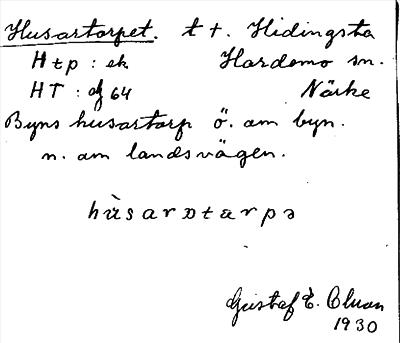 Husartorpet. t t. Hidingsta
Htp : ek Hardemo sn.
HT : af 64 Närke
Byns husartorp ö. om byn.
n. om landsvägen.
hùsarɷtarpə
Gustaf E. Cluon
1930